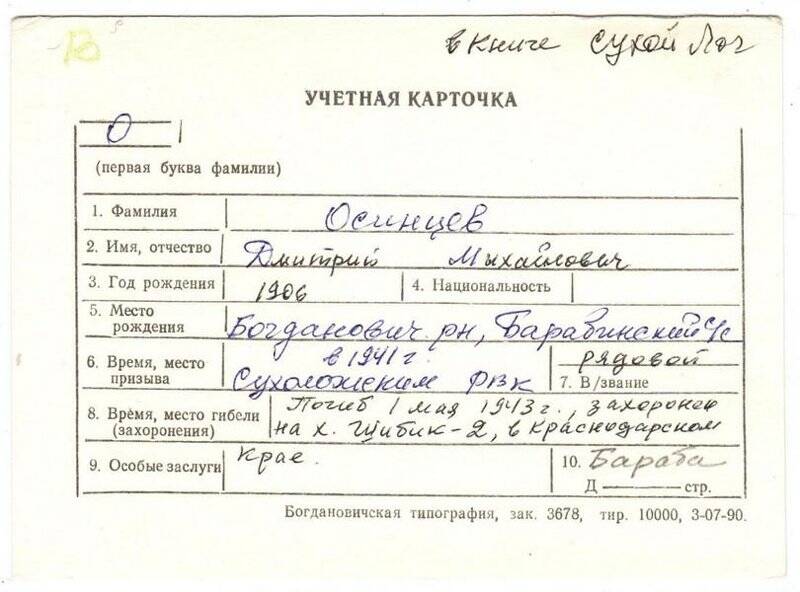 В
в книге Сухой Лог
УЧЕТНАЯ КАРТОЧКА
О
(первая буква фамилии)
1. Фамилия Осинцев
2. Имя, отчество Дмитрий Михайлович
3. Год рождения 1906 4. Национальность
5. Место рождения Богданович рн, Барабинский с/с
6. Время, место призыва в 1941 г. Сухоложским РВК
рядовой
7. В/звание
8. Время, место гибели (захоронения) Погиб 1 мая 1943 г., захоронен
на х. Шибик-2, в Краснодарском
крае.
9. Особые заслуги
10. Бараба
Д — стр.
Богдановичская типография, зак. 3678, тир. 10000, 3-07-90.